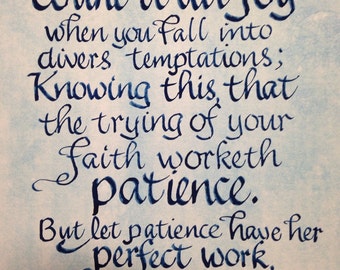 Count it all joy
when you fall into
divers temptations;
Knowing this, that
the trying of your
faith worketh
patience.
But let patience have her
perfect work,